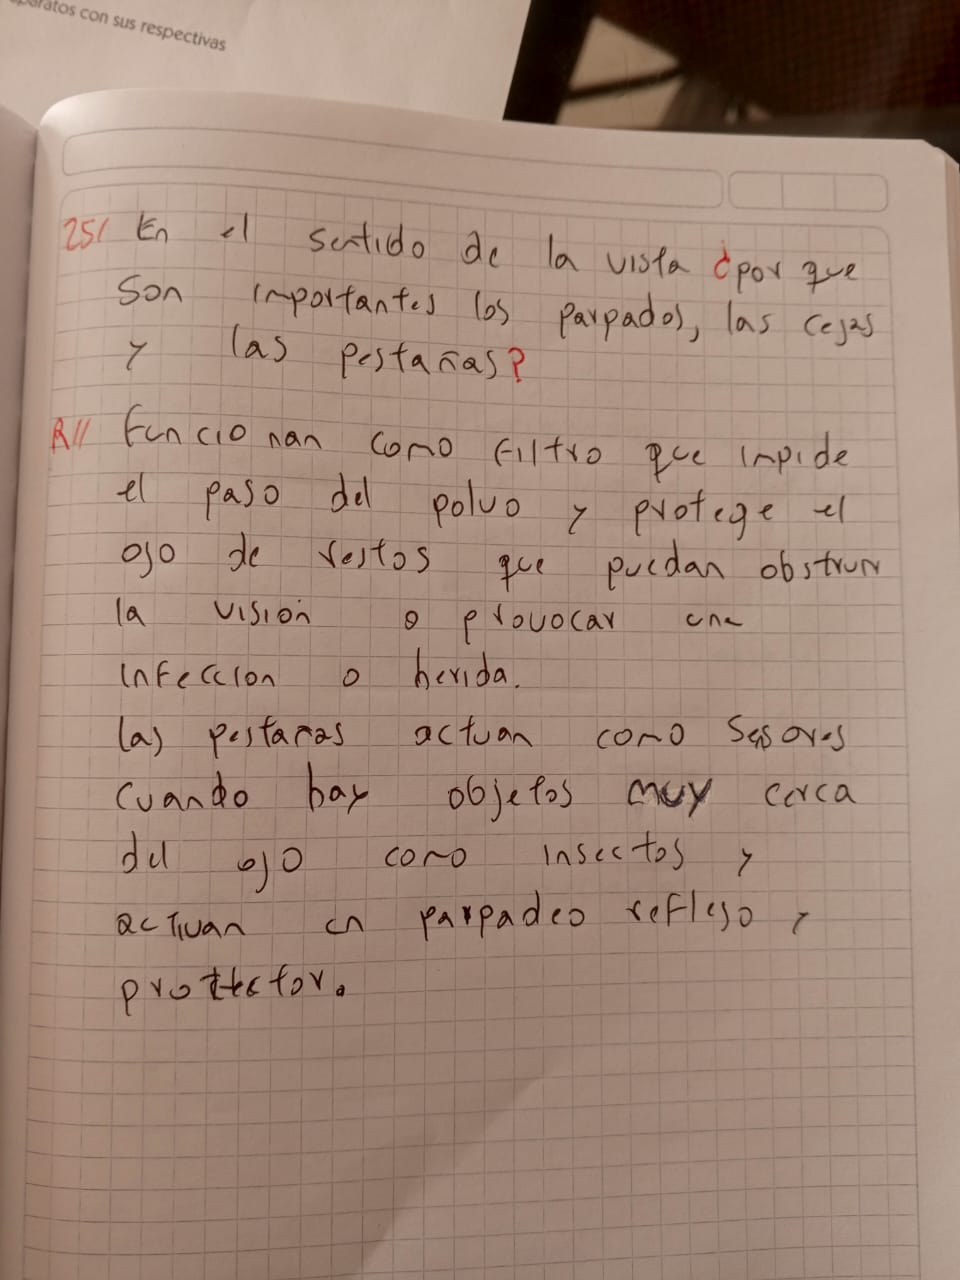 aratos con sus respectivas
25/ En el sentido de la vista ¿por que
son importantes los parpados, las cejas
y las pestañas?
R// Funcionan como filtro que impide
el paso del polvo y protege el
ojo de restos que puedan obstruir
la visión o provocar una
infeccion o herida.
las pestañas actuan como sesores
cuando hay objetos muy cerca
del ojo como insectos y
actuan en parpadeo reflejo y
protector.